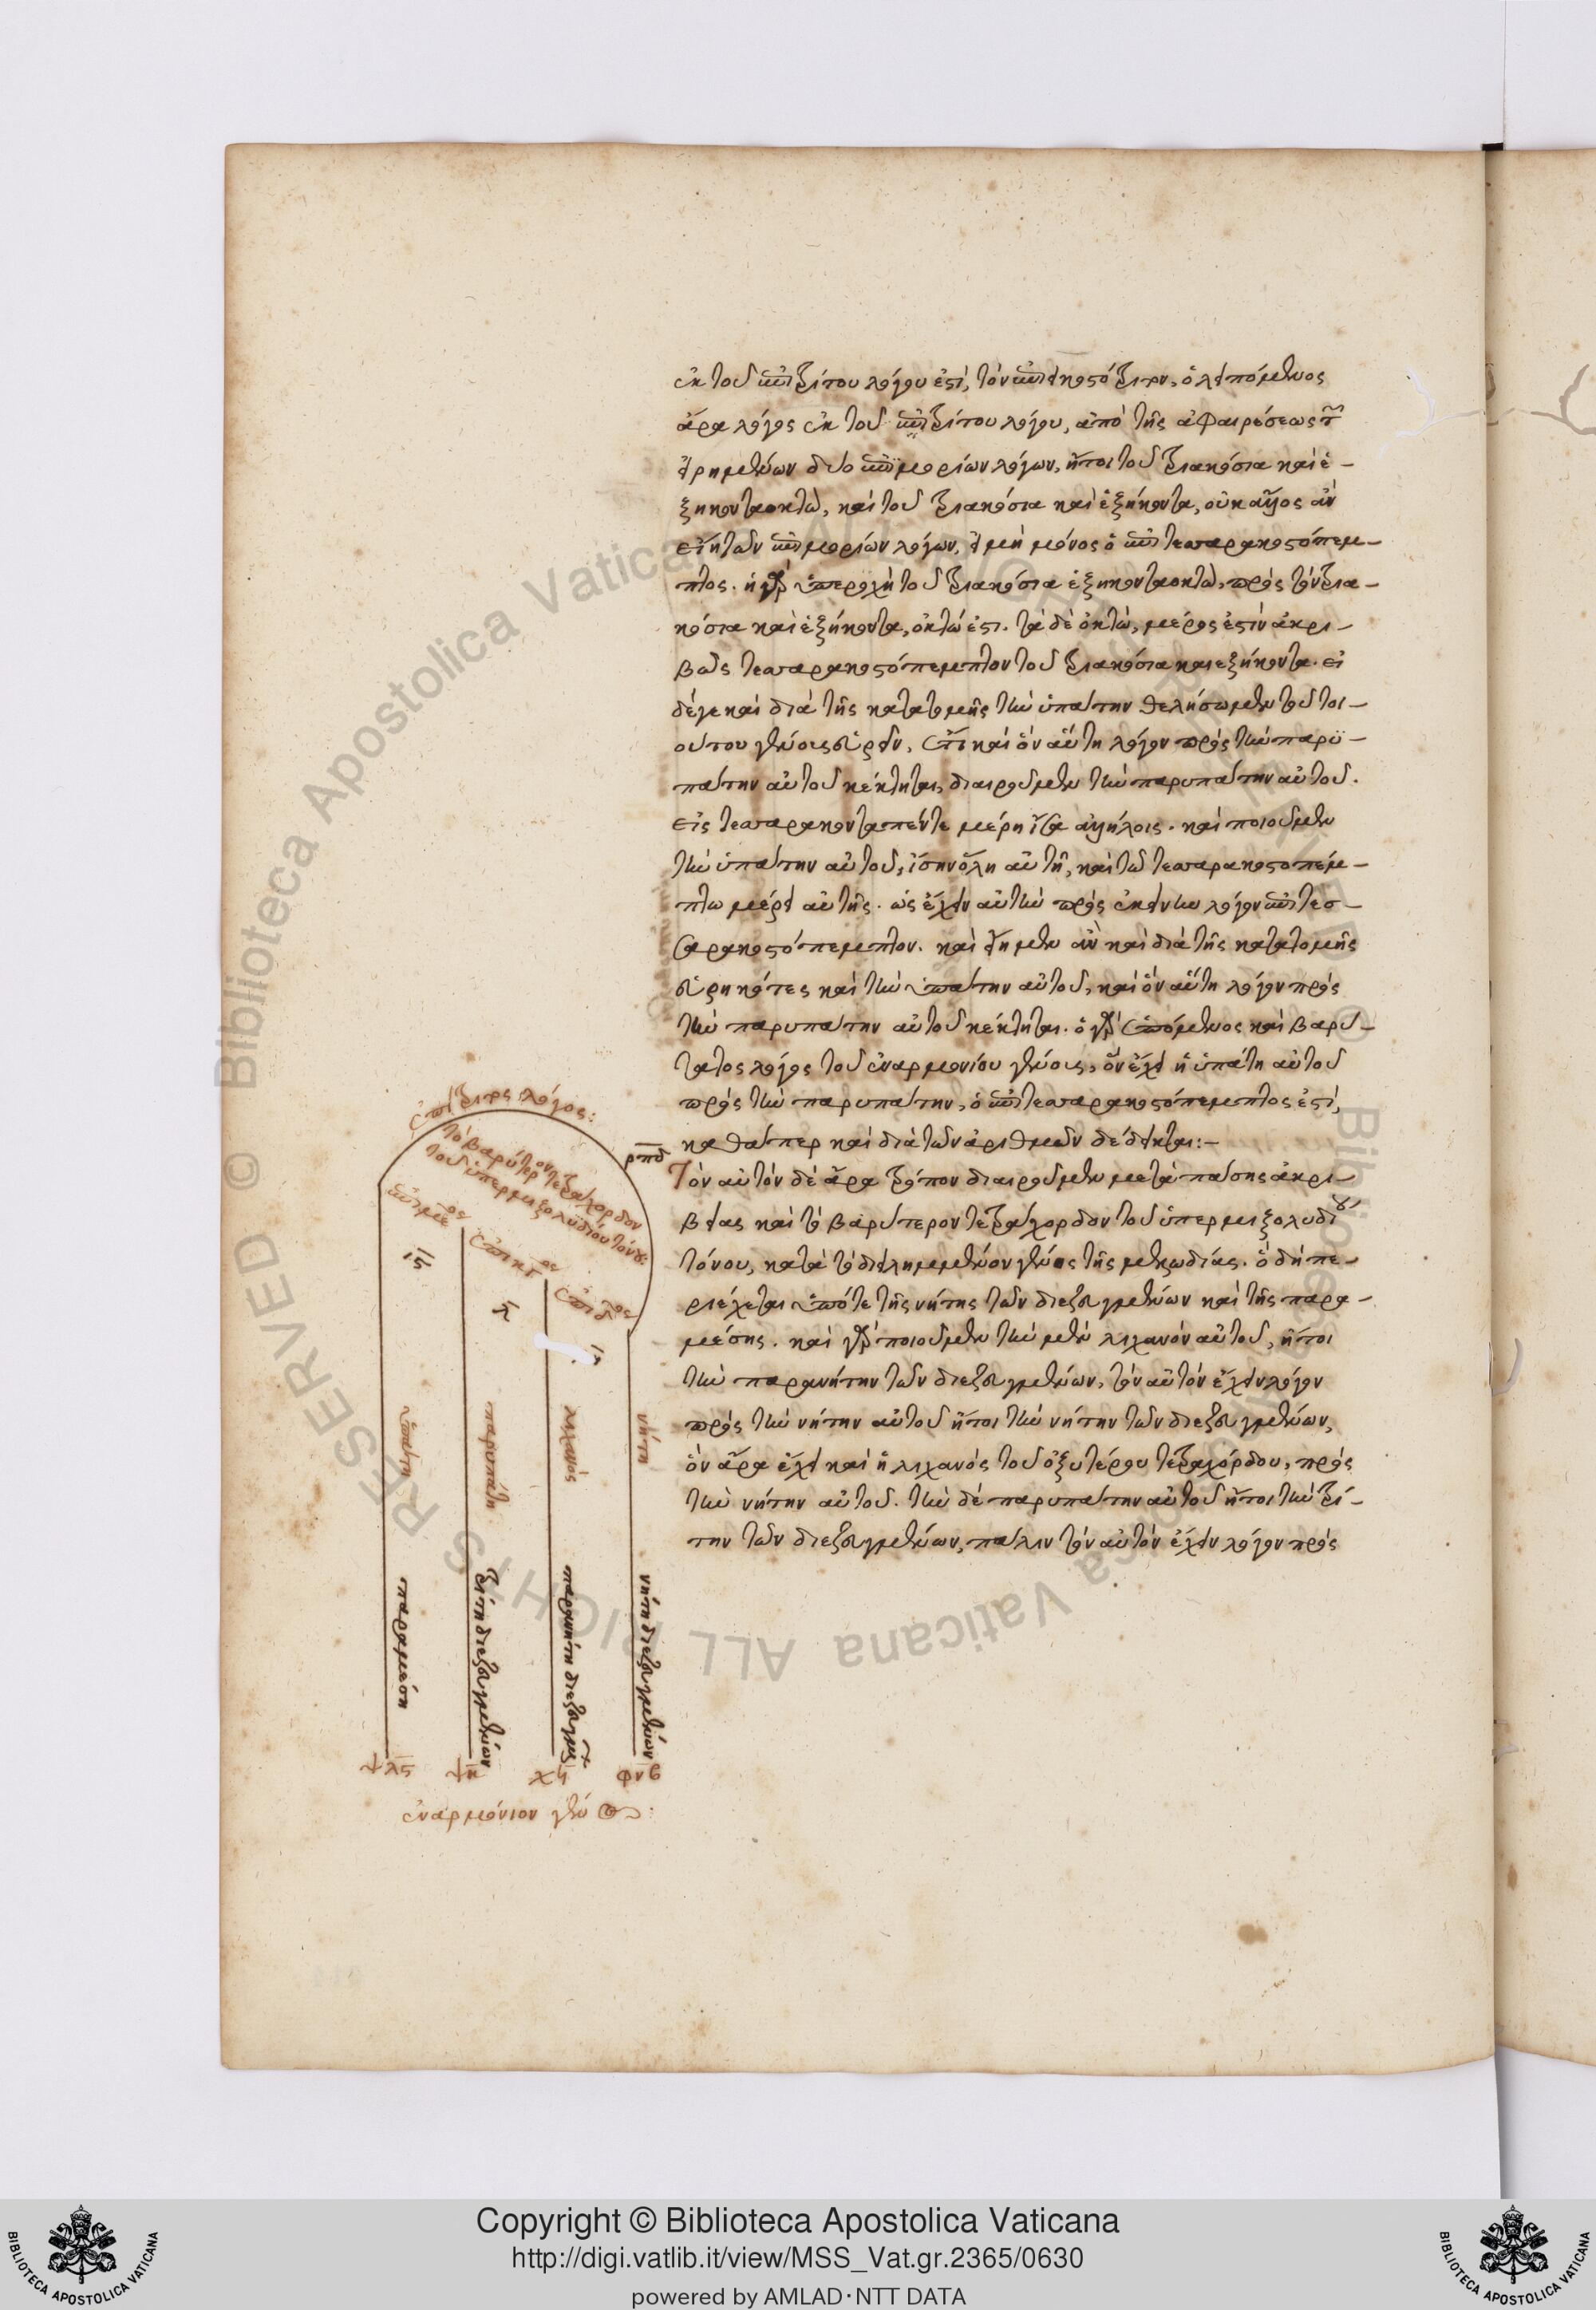 ἐκ τοῦ ἐπιτρίτου λόγου ἐστὶ, τὸν ἐπιεικοστότριτον, ὁ λειπόμενος
ἄρα λόγος ἐκ τοῦ ἐπιτρίτου λόγου, ἀπὸ τῆς ἀφαιρέσεως τῶν
εἰρημένων δύο ἐπιμορίων λόγων, ἤτοι τοῦ τριακόσια καὶ ἑ-
ξηκονταοκτὼ, καὶ τοῦ τριακόσια καὶ ἑξήκοντα, οὐκ ἄλλος ἂν
εἴη τῶν ἐπιμορίων λόγων, εἰ μὴ μόνος ὁ ἐπιτεσσαρακοστόπεμ-
πτος. ἡ γὰρ ὑπεροχὴ τοῦ τριακόσια ἑξηκονταοκτὼ, πρὸς τὸν τρια-
κόσια καὶ ἑξήκοντα, ὀκτώ ἐστι. τὰ δὲ ὀκτὼ, μέρος ἐστὶν ἀκρι-
βῶς τεσσαρακοστόπεμπτον τοῦ τριακόσια και εξήκοντα. εἰ
δέγε καὶ διὰ τῆς κατατομῆς τὴν ὑπάτην θελήσωμεν τοῦ τοι-
ούτου γένους εὑρεῖν, ἔτι καὶ ὃν αὕτη λόγον πρὸς τὴν παρϋ-
πάτην αὐτοῦ κέκτηται, διαιροῦμεν τὴν παρυπάτην αὐτοῦ.
εἰς τεσσαρακονταπέντε μέρη ἴσα ἀλλήλοις. καὶ ποιοῦμεν
τὴν ὑπάτην αὐτοῦ, ἴσην ὅλῃ αὐτῇ, καὶ τῶ τεσσαρακοστοπέμ-
πτω μέρει αὐτῆς. ὡς ἔχειν αὐτὴν πρὸς ἐκείνην λόγον ἐπιτεσ-
σαρακοστόπεμπτον. καὶ εἴημεν ἂν καὶ διὰ τῆς κατατομῆς
εὑρηκότες καὶ τὴν ὑπάτην αὐτοῦ, καὶ ὃν αὕτη λόγον πρὸς
τὴν παρυπάτην αὐτοῦ κέκτηται. ὁ γὰρ ἑπόμενος καὶ βαρύ-
τατος λόγος τοῦ ἐναρμονίου γένους, ὃν ἔχει ἡ ὑπάτη αὐτοῦ
πρὸς τὴν παρυπάτην, ὁ ἐπιτεσσαρακοστόπεμπτος ἐστὶ,
καθάπερ καὶ διὰ τῶν ἀριθμῶν δέδεικται:-
Τὸν αὐτὸν δὲ ἄρα τρόπον διαιροῦμεν μετὰ πάσης ἀκρι-
βείας καὶ τὸ βαρύτερον τετράχορδον τοῦ ὑπερμιξολυδίου
τόνου, κατὰ τὸ διειλημμένον γένος τῆς μελῳδίας. ὃ δὴ πε-
ριέχεται ὑπό τε τῆς νήτης τῶν διεζευγμένων καὶ τῆς παρα-
μέσης. καὶ γὰρ ποιοῦμεν τὴν μὲν λιχανὸν αὐτοῦ, ἤτοι
τὴν παρανήτην τῶν διεζευγμένων, τὸν αὐτὸν ἔχειν λόγον
πρὸς τὴν νήτην αὐτοῦ ἤτοι τὴν νήτην τῶν διεζευγμένων,
ὃν ἄρα ἔχει καὶ ἡ λιχανὸς τοῦ ὀξυτέρου τετραχόρδου, πρὸς
τὴν νήτην αὐτοῦ. τὴν δὲ παρυπάτην αὐτοῦ ἤτοι τὴν τρί-
την τῶν διεζευγμένων, πάλιν τὸν αὐτὸν ἔχειν λόγον πρὸς
ἐπίτριτος λόγος:
ρπδ
τὸ βαρύτερον τετράχορδον
τοῦ ὑπερμιξολυδίου τόνου:
ἐπιμεος
ἐπικγος
ἐπιδος
ις
λ
ὑπάτη
παρυπάτη
λιχανὸς
νήτη
παραμέση
τρίτη διεζευγμένων
παρανήτη διεζευγμένων
νήτη διεζευγμένων
ψλς
ψκ
χϟ
φνβ
ἐναρμόνιον γένος:
Copyright © Biblioteca Apostolica Vaticana
http://digi.vatlib.it/view/MSS_Vat.gr.2365/0630
powered by AMLAD·NTT DATA
BIBLIOTECA APOSTOLICA VATICANA
BIBLIOTECA APOSTOLICA VATICANA
© Biblioteca Apostolica Vaticana ALL RIGHTS RESERVED